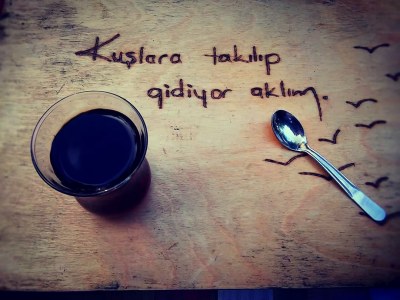 Kuşlara takılıp
gidiyor aklım.